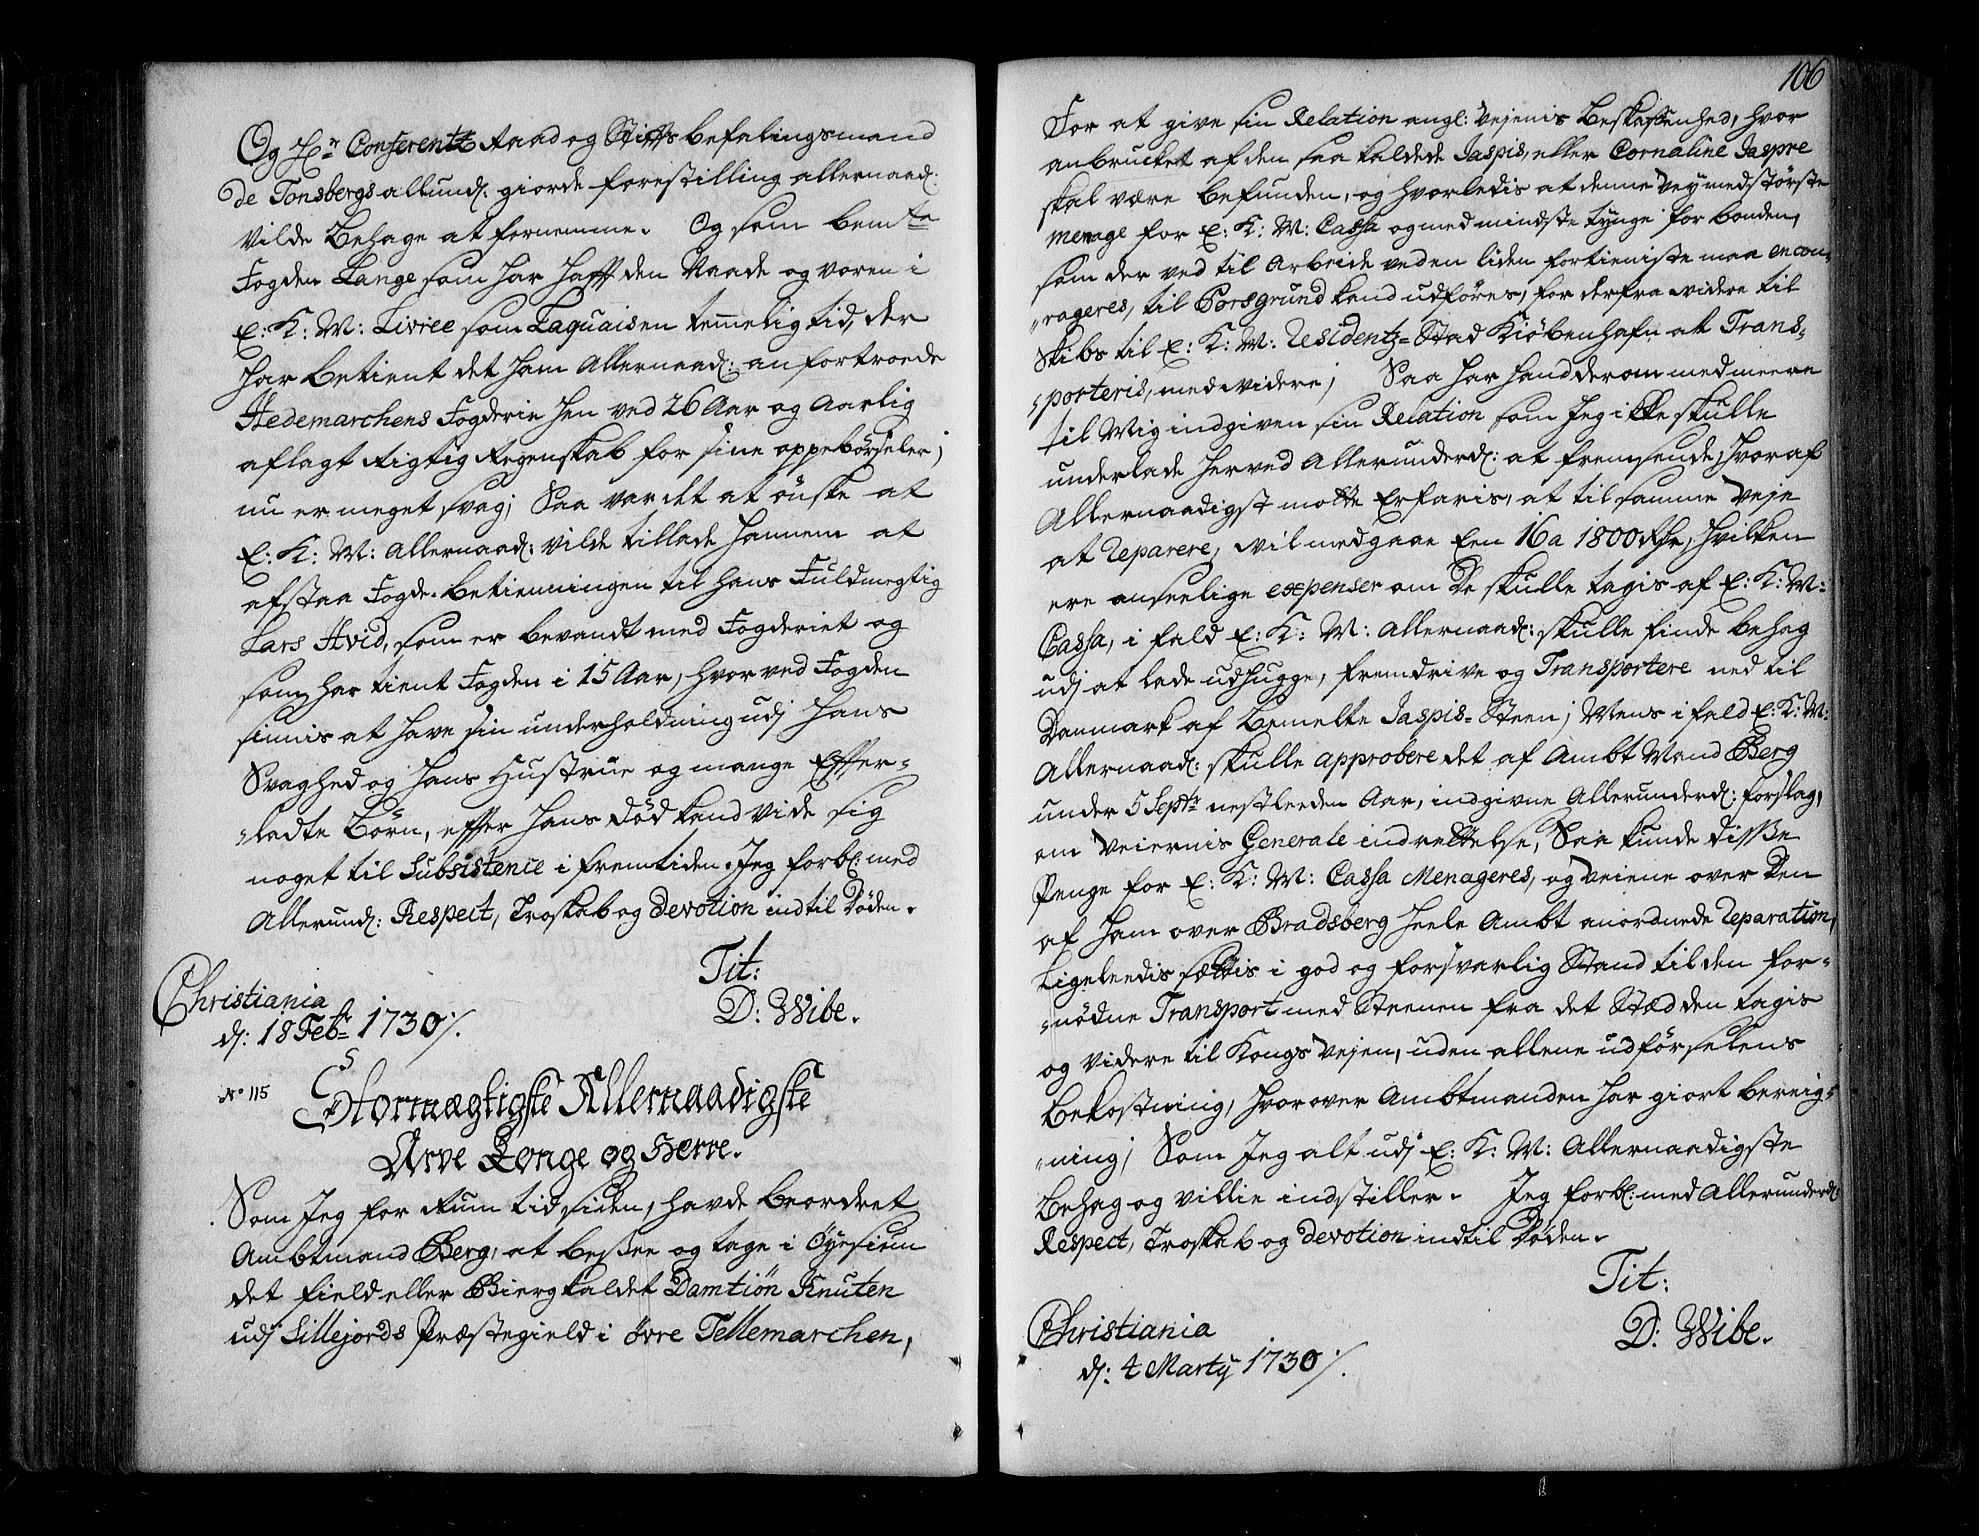 Og Hr Conferentz Raad og Stiffts befalingsmand
de Tonsbergs allund: giorde forestilling allernaad:
vilde behage at fornemme. Og som bemte
Fogden Lange som har hafft den Naade og voren i
E: K: M: Livree som Laquais en temmelig tid, der
har betient det ham Allernaad: anfortroede
Hedemarchens Fogderie hen ved 26 Aar og Aarlig
aflagt Rigtig Regenskab for sine oppebörseler;
nu er meget svag; Saa var det at önske at
E: K: M: Allernaad: vilde tillade hannem at
afstaa Fogde-betienningen til hans Fuldmegtig
Lars Hvid, som er bevandt med Fogderiet og
som har tient Fogden i 15 Aar, hvorved Fogden
siunis at have sin underholdning udj hans
Svaghed og hans Hustrue og mange Effter-
-ladte Börn, effter hans död kand vide sig
noget til Subsistence i fremtiden. Jeg forbl: med
Allerund: Respect, Troskab og devotion indtil Döden.
Tit:
Christiania
D: Wibe.
d: 18 Febr 1730 /.
No 115
Stormægtigste Allernaadigste
Arve Konge og Herre.
Som Jeg for Rum tid siden, havde beordret
Ambtmand Berg, at besee og tage i Öyesiun
det field eller Bierg kaldet Damtiön Knuten
udj Sillejords Præstegield i övre Tellemarchen,
106
For at give sin Relation angl: vejenis Beskaffenhed, hvor
anbrucket af den saa kaldede Jaspis, eller Cornaline Jaspre
skal være befunden, og hvorledis at denne vey med störste
menage for E: K: M: Cassa og med mindste tynge for bonden,
som der ved til Arbeide ved en liden fortieniste maa encou-
-rageres, til Porsgrund kand udföres, for derfra videre til
Skibs til E: K: M: Residentz-Stad Kiöbenhafn at Trans-
-porteris, med videre; Saa har hand derom med meere
til Mig indgiven sin Relation som Jeg ikke skulle
underlade herved Allerunderd: at fremsende, hvoraf
Allernaadigst motte Erfaris, at til samme Veje
at Reparere, vil medgaae Een 16 a 1800 Rdr, hvilken
ere anseelige expenser om De skulle tagis af E: K: M:
Cassa, i fald E: K: M: Allernaad: skulle finde behag
udj at lade udhugge, fremdrive og Transportere ned til
Danmark af bemelte Jaspis-Steen; Mens i fald E: K: M:
Allernaad: skulle approbere det af Ambt Mand Berg
under 5 Septr nestleeden Aar, indgivne Allerunderd: forslag,
om Veiernis Generale indrettelse, Saa kunde disse
Penge for E: K: M: Cassa Menageres, og veiene over den
af ham over Bradsberg heele Ambt anordnede Reparation,
Ligeleedis sættis i god og forsvarlig Stand til den for-
-nödne Transport med Steenen fra det Stæd den tagis
og videre til Kongs Vejen, uden allene udförselens
Bekostning, hvorover Ambtmanden har giort bereig-
-ning; Som Jeg alt udj E: K: M: Allernaadigste
Behag og villie indstiller. Jeg forbl: med Allerunderd:
Respect, Troskab og devotion indtil Döden.
Tit:
Christiania
D: Wibe.
d: 4 Marty 1730 /.